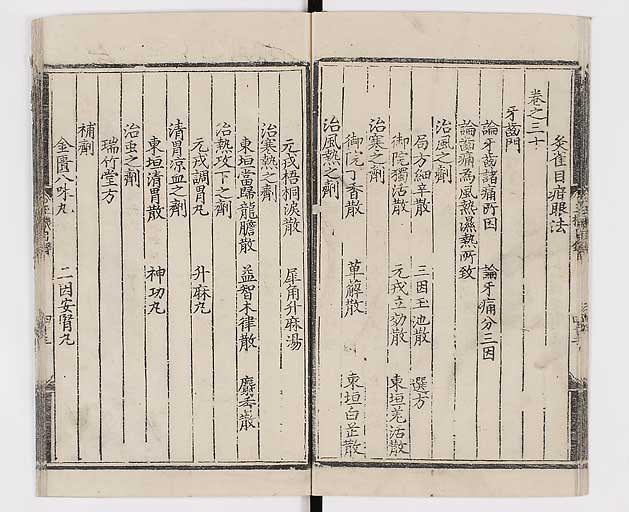 灸雀目疳眼法
卷之三十
牙齒門
論牙齒諸痛所因 論牙痛分三因
論齒痛為風熱濕熱所致
治風之劑
局方細辛散 三因玉池散 選方
御院獨活散 元戎立効散 東垣羌活散
治寒之劑
御院丁香散 蓽䕡散 東垣白芷散
治風熱之劑
元戎梧桐淚散 犀角升麻湯
治寒熱之劑
東垣當歸龍膽散 益智木律散 麝香散
治熱攻下之劑
元戎調胃丸 升麻丸
清胃凉血之劑
東垣清胃散 神功丸
治虫之劑
瑞竹堂方
補劑
金匱八味丸 三因安腎丸